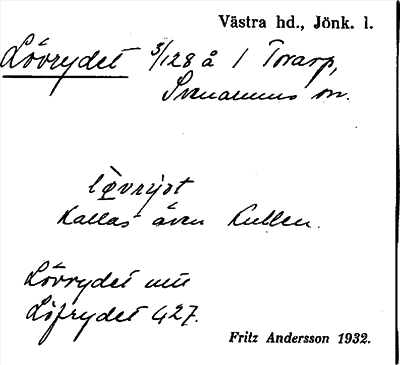 Västra hd., Jönk. l.
Lövrydet 3/128 å 1 Torarp,
Svenarums sn.
Kallas även Kullen.
Lövrydet
Löfrydet 427.
Fritz Andersson 1932.